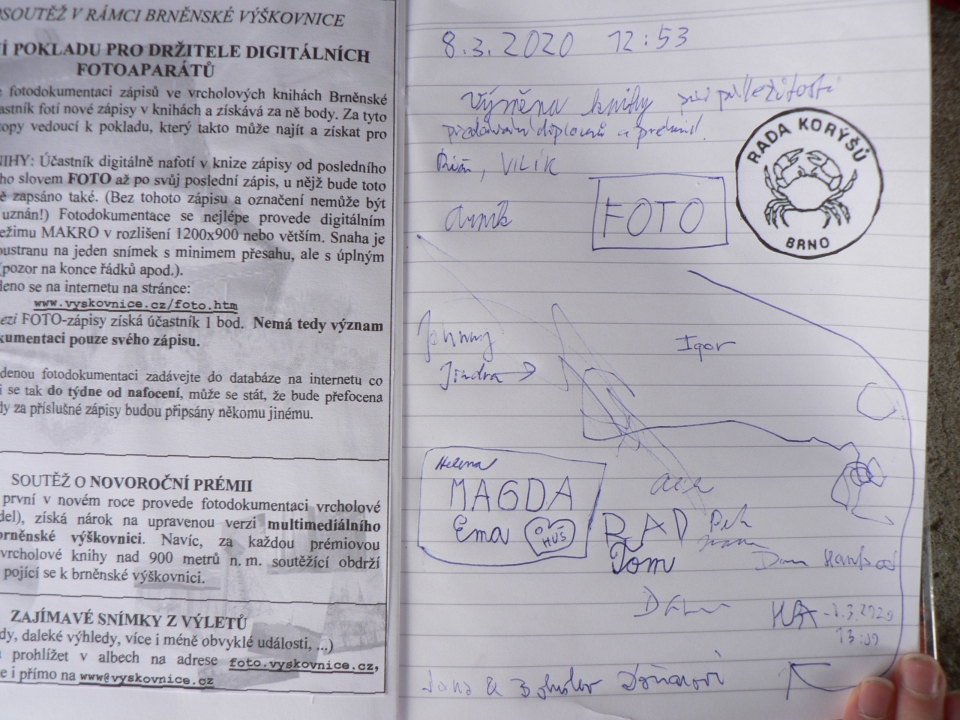 SOUTĚŽ V RÁMCI BRNĚNSKÉ VÝŠKOVNICE
Í POKLADU PRO DRŽITELE DIGITÁLNÍCH
FOTOAPARÁTŮ
fotodokumentaci zápisů ve vrcholových knihách Brněnské
astník fotí nové zápisy v knihách a získává za ně body. Za tyto
opy vedoucí k pokladu, který takto může najít a získat pro
NIHY: Účastník digitálně nafotí v knize zápisy od posledního
ho slovem FOTO až po svůj poslední zápis, u nějž bude toto
ě zapsáno také. (Bez tohoto zápisu a označení nemůže být
uznán!) Fotodokumentace se nejlépe provede digitálním
ežimu MAKRO v rozlišení 1200x900 nebo větším. Snaha je
oustranu na jeden snímek s minimem přesahu, ale s úplným
(pozor na konce řádků apod.).
deno se na internetu na stránce:
www.vyskovnice.cz/foto.htm
ezi FOTO-zápisy získá účastník 1 bod. Nemá tedy význam
kumentaci pouze svého zápisu.
denou fotodokumentaci zadávejte do databáze na internetu co
i se tak do týdne od nafocení, může se stát, že bude přefocena
dy za příslušné zápisy budou připsány někomu jinému.
SOUTĚŽ O NOVOROČNÍ PRÉMII
první v novém roce provede fotodokumentaci vrcholové
del), získá nárok na upravenou verzi multimediálního
rněnské výškovnici. Navíc, za každou prémiovou
vrcholové knihy nad 900 metrů n. m. soutěžící obdrží
pojící se k brněnské výškovnici.
ZAJÍMAVÉ SNÍMKY Z VÝLETŮ
dy, daleké výhledy, více i méně obvyklé události, ...)
prohlížet v albech na adrese foto.vyskovnice.cz,
e i přímo na www@vyskovnice.cz
8.3.2020 12:53
Výměna knihy při příležitosti
předávání diplomů a prémií.
VILÍK
FOTO
RADA KORÝŠŮ
BRNO
Johnny
Igor
Jindra
Helena
MAGDA
Ema HUŠ
RAD Petr
Tom
Dan
8.3.2020
13:09
Jana &